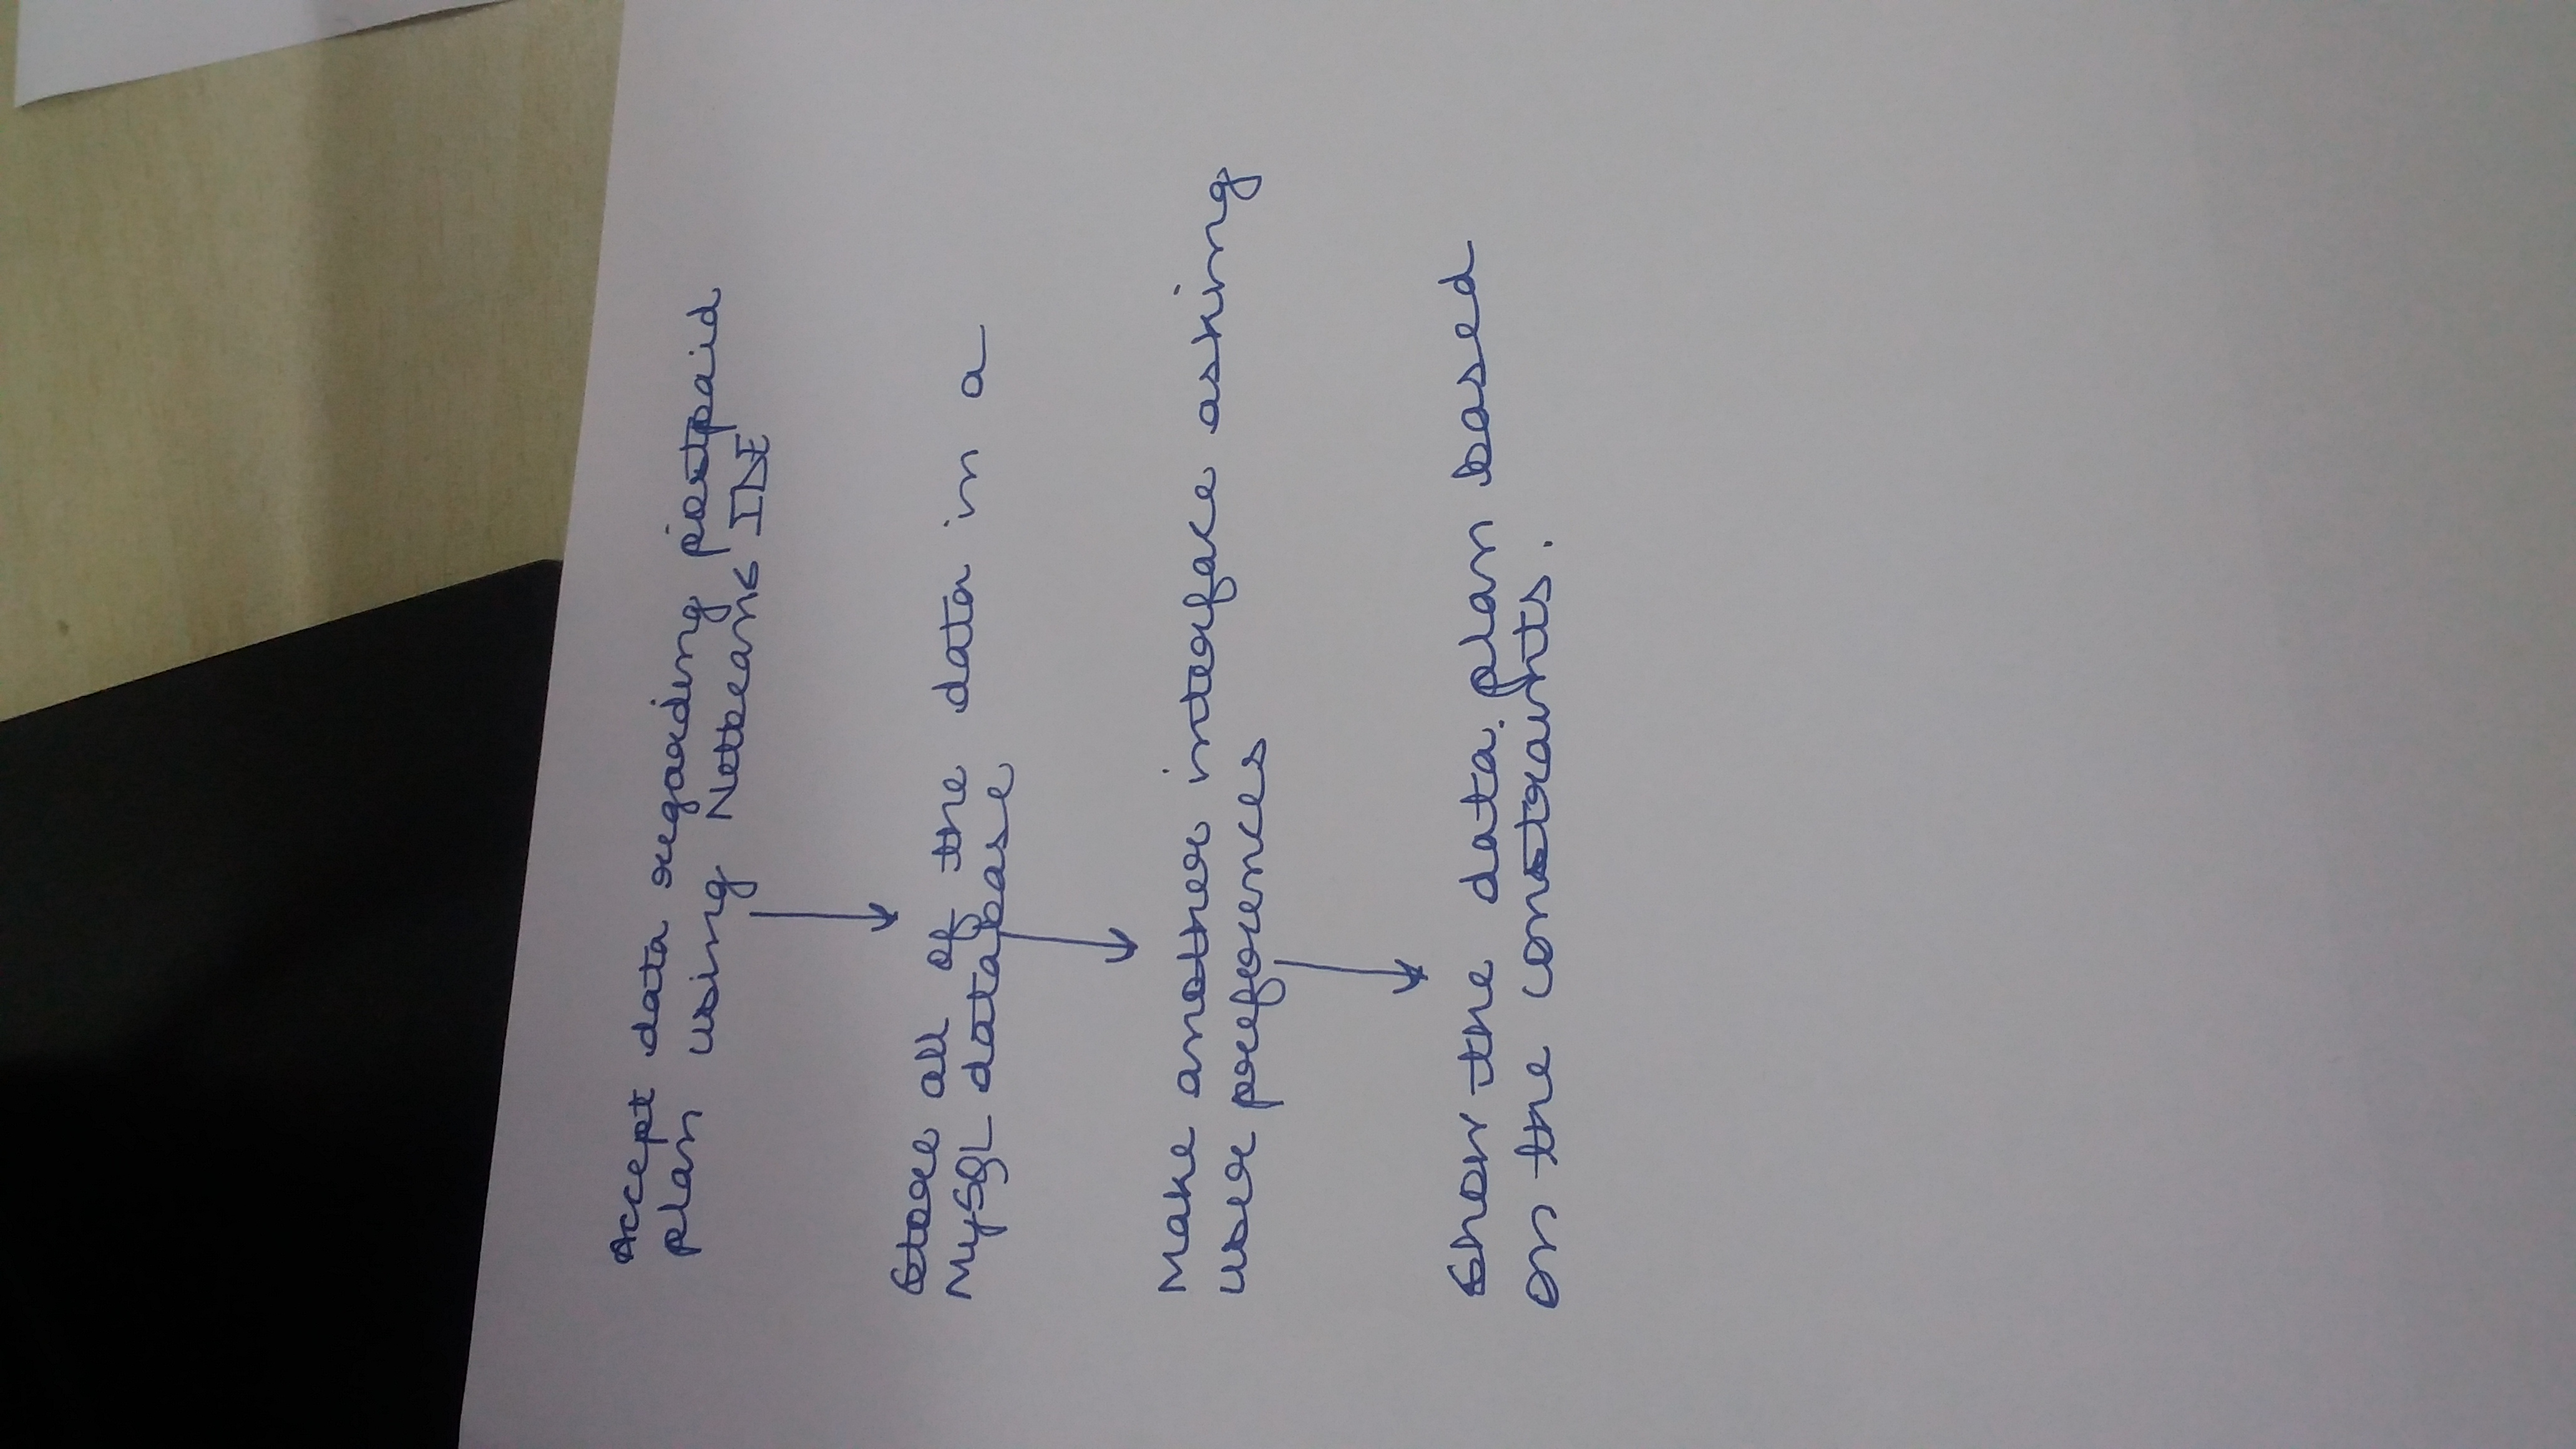 Accept data regarding postpaid
plan using Netbeans IDE
Store all of the data in a
MySQL database
Make another interface asking
user preferences
Show the data plan based
on the constraints.